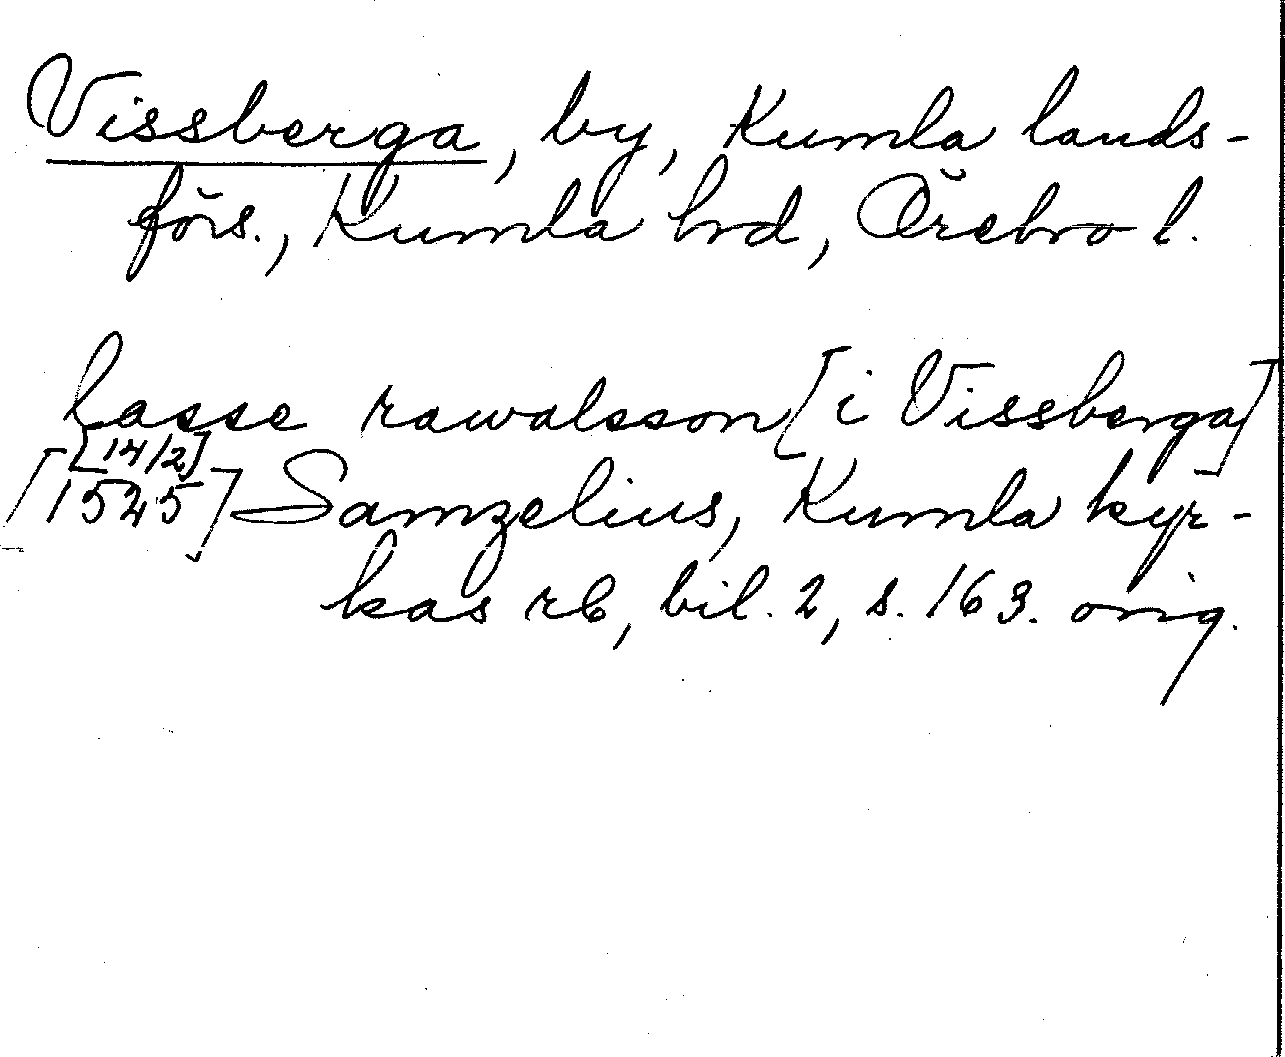 Vissberga, by, Kumla lands-
förs., Kumla hrd, Örebro l.
lasse rawalsson [i Vissberga]
[14/2]
[1525] Samzelius, Kumla kyr-
kas rb, bil. 2, s. 163. orig.